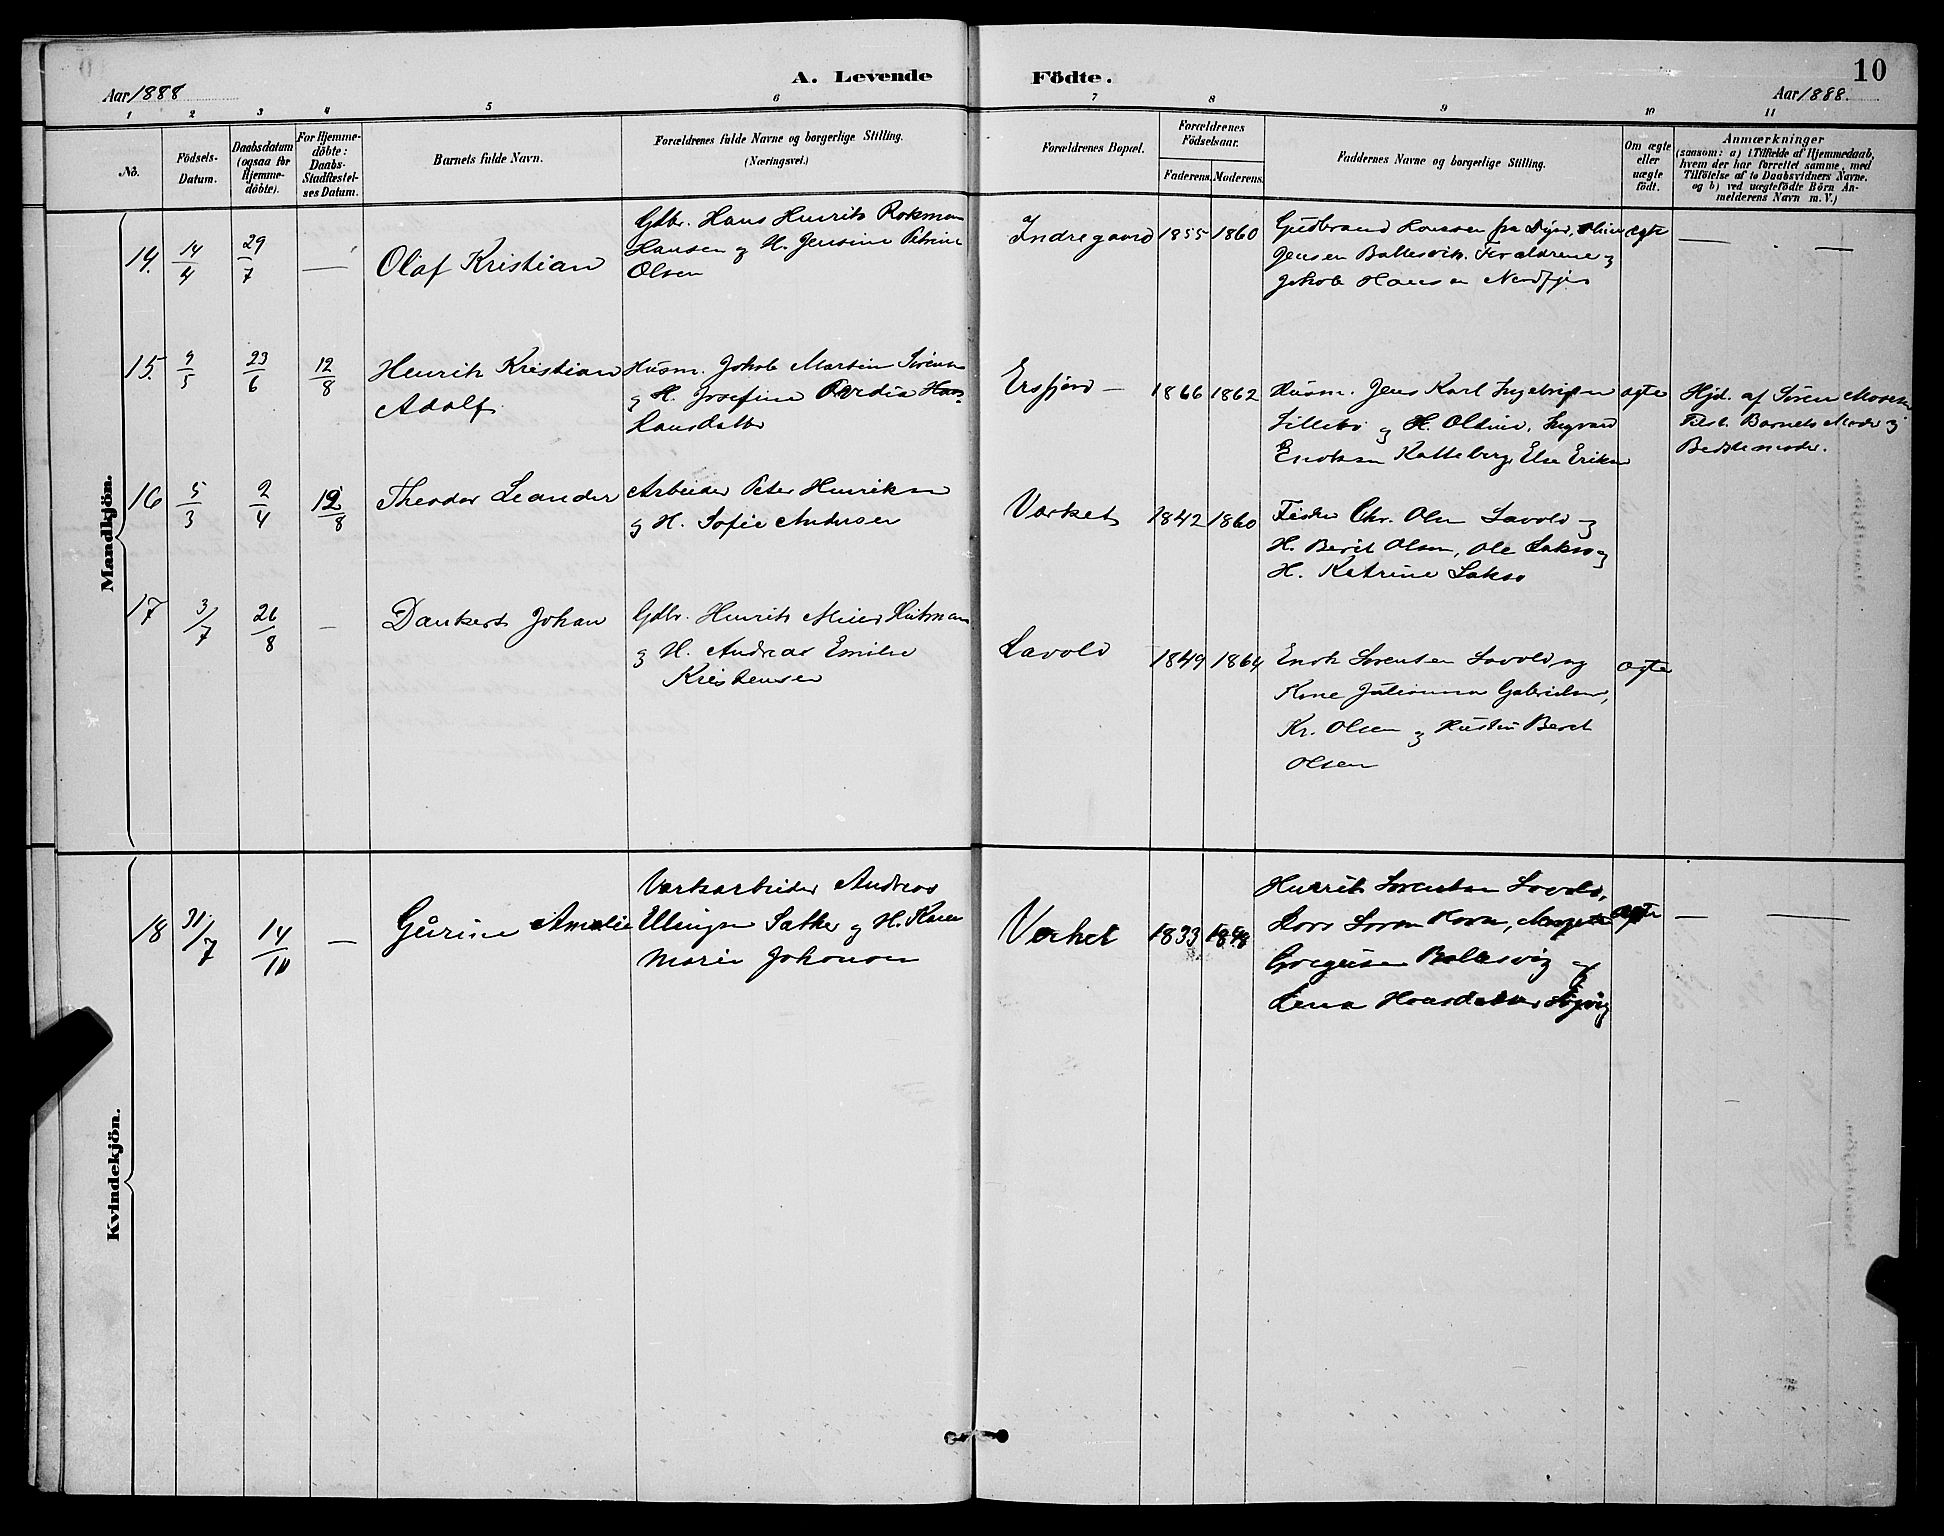 10
A. Levende Födte.
Aar 1888
Aar 1888.
1 2 3 4 5 6 7 8 9 10 11
No.
Födsels-
Datum.
Daabsdatum
(ogsaa for
Hjemme-
döbte).
For Hjemme-
döbte:
Daabs-
Stadfæstel-
ses Datum.
Barnets fulde Navn.
Forældrenes fulde Navne og borgerlige Stilling.
(Næringsvei.)
Forældrenes Bopæl.
Forældrenes
Födselsaar.
Faderens. Moderens.
Faddernes Navne og borgerlige Stilling.
Om ægte
eller
uægte
födt.
Anmærkninger
(saasom: a) i Tilfælde af Hjemmedaab,
hvem der har forrettet samme, med
Tilföielse af to Daabsvidners Navne.
og b) ved uægtefödte Börn An-
melderens Navn m. V.)
Mandkjön.
14. 14/4 29/7 —
Olaf Kristian
Gdbr. Hans Henrik
Hansen og H. Jensine Petrine
Olsen
Indregaard 1855 1860
Gudbrand Hansen fra
Jensen Baltesvik. Forældrene og
Jakob Hansen
ægte — —
15. 9/5 23/6 12/8
Henrik Kristian
Adolf
Husm. Jakob Martin Sörens
og H. Josefine Ovedia Hans
Hansdatter
Ersfjord — 1866 1862
Husm. Jens Karl Ingebrigtsen
Lillebö og H. Oldine, Ingvard
Enoksen Katteberg, Else Eriksen
ægte
Hjd. af Sören
Tilst. Barnets Moder og
Bedstemoder.
16 5/3 2/4 12/8
Theodor Leander
Arbeider Peter Henriksen
og H. Sofie Andersen
Værket 1842 1860
Fisker Chr. Olsen Lavold og
H. Berit Olsen, Ole Laksø og
H. Katrine Laksø
17 3/7 26/8 —
Dankert Johan
Gdbr. Henrik Meier
og H. Andrea Emilie
Kristensen
Lavold 1849 1864
Enok Sörensen Lavold og
Kone Julianna Gabrielsen,
Kr. Olsen og Hustru Beret
Olsen
ægte
Kvindekjön.
18 31/7 14/10 —
Gurine Amalie
Værksarbeider Andreas
Ellingsen Sæther og H. Karen
Marie Johansen
Værket 1833 1848
Henrik Sörensen Lavold,
Lars Sören
Gregersen Ballesvig og
Lena Hansdatter
ægte — —